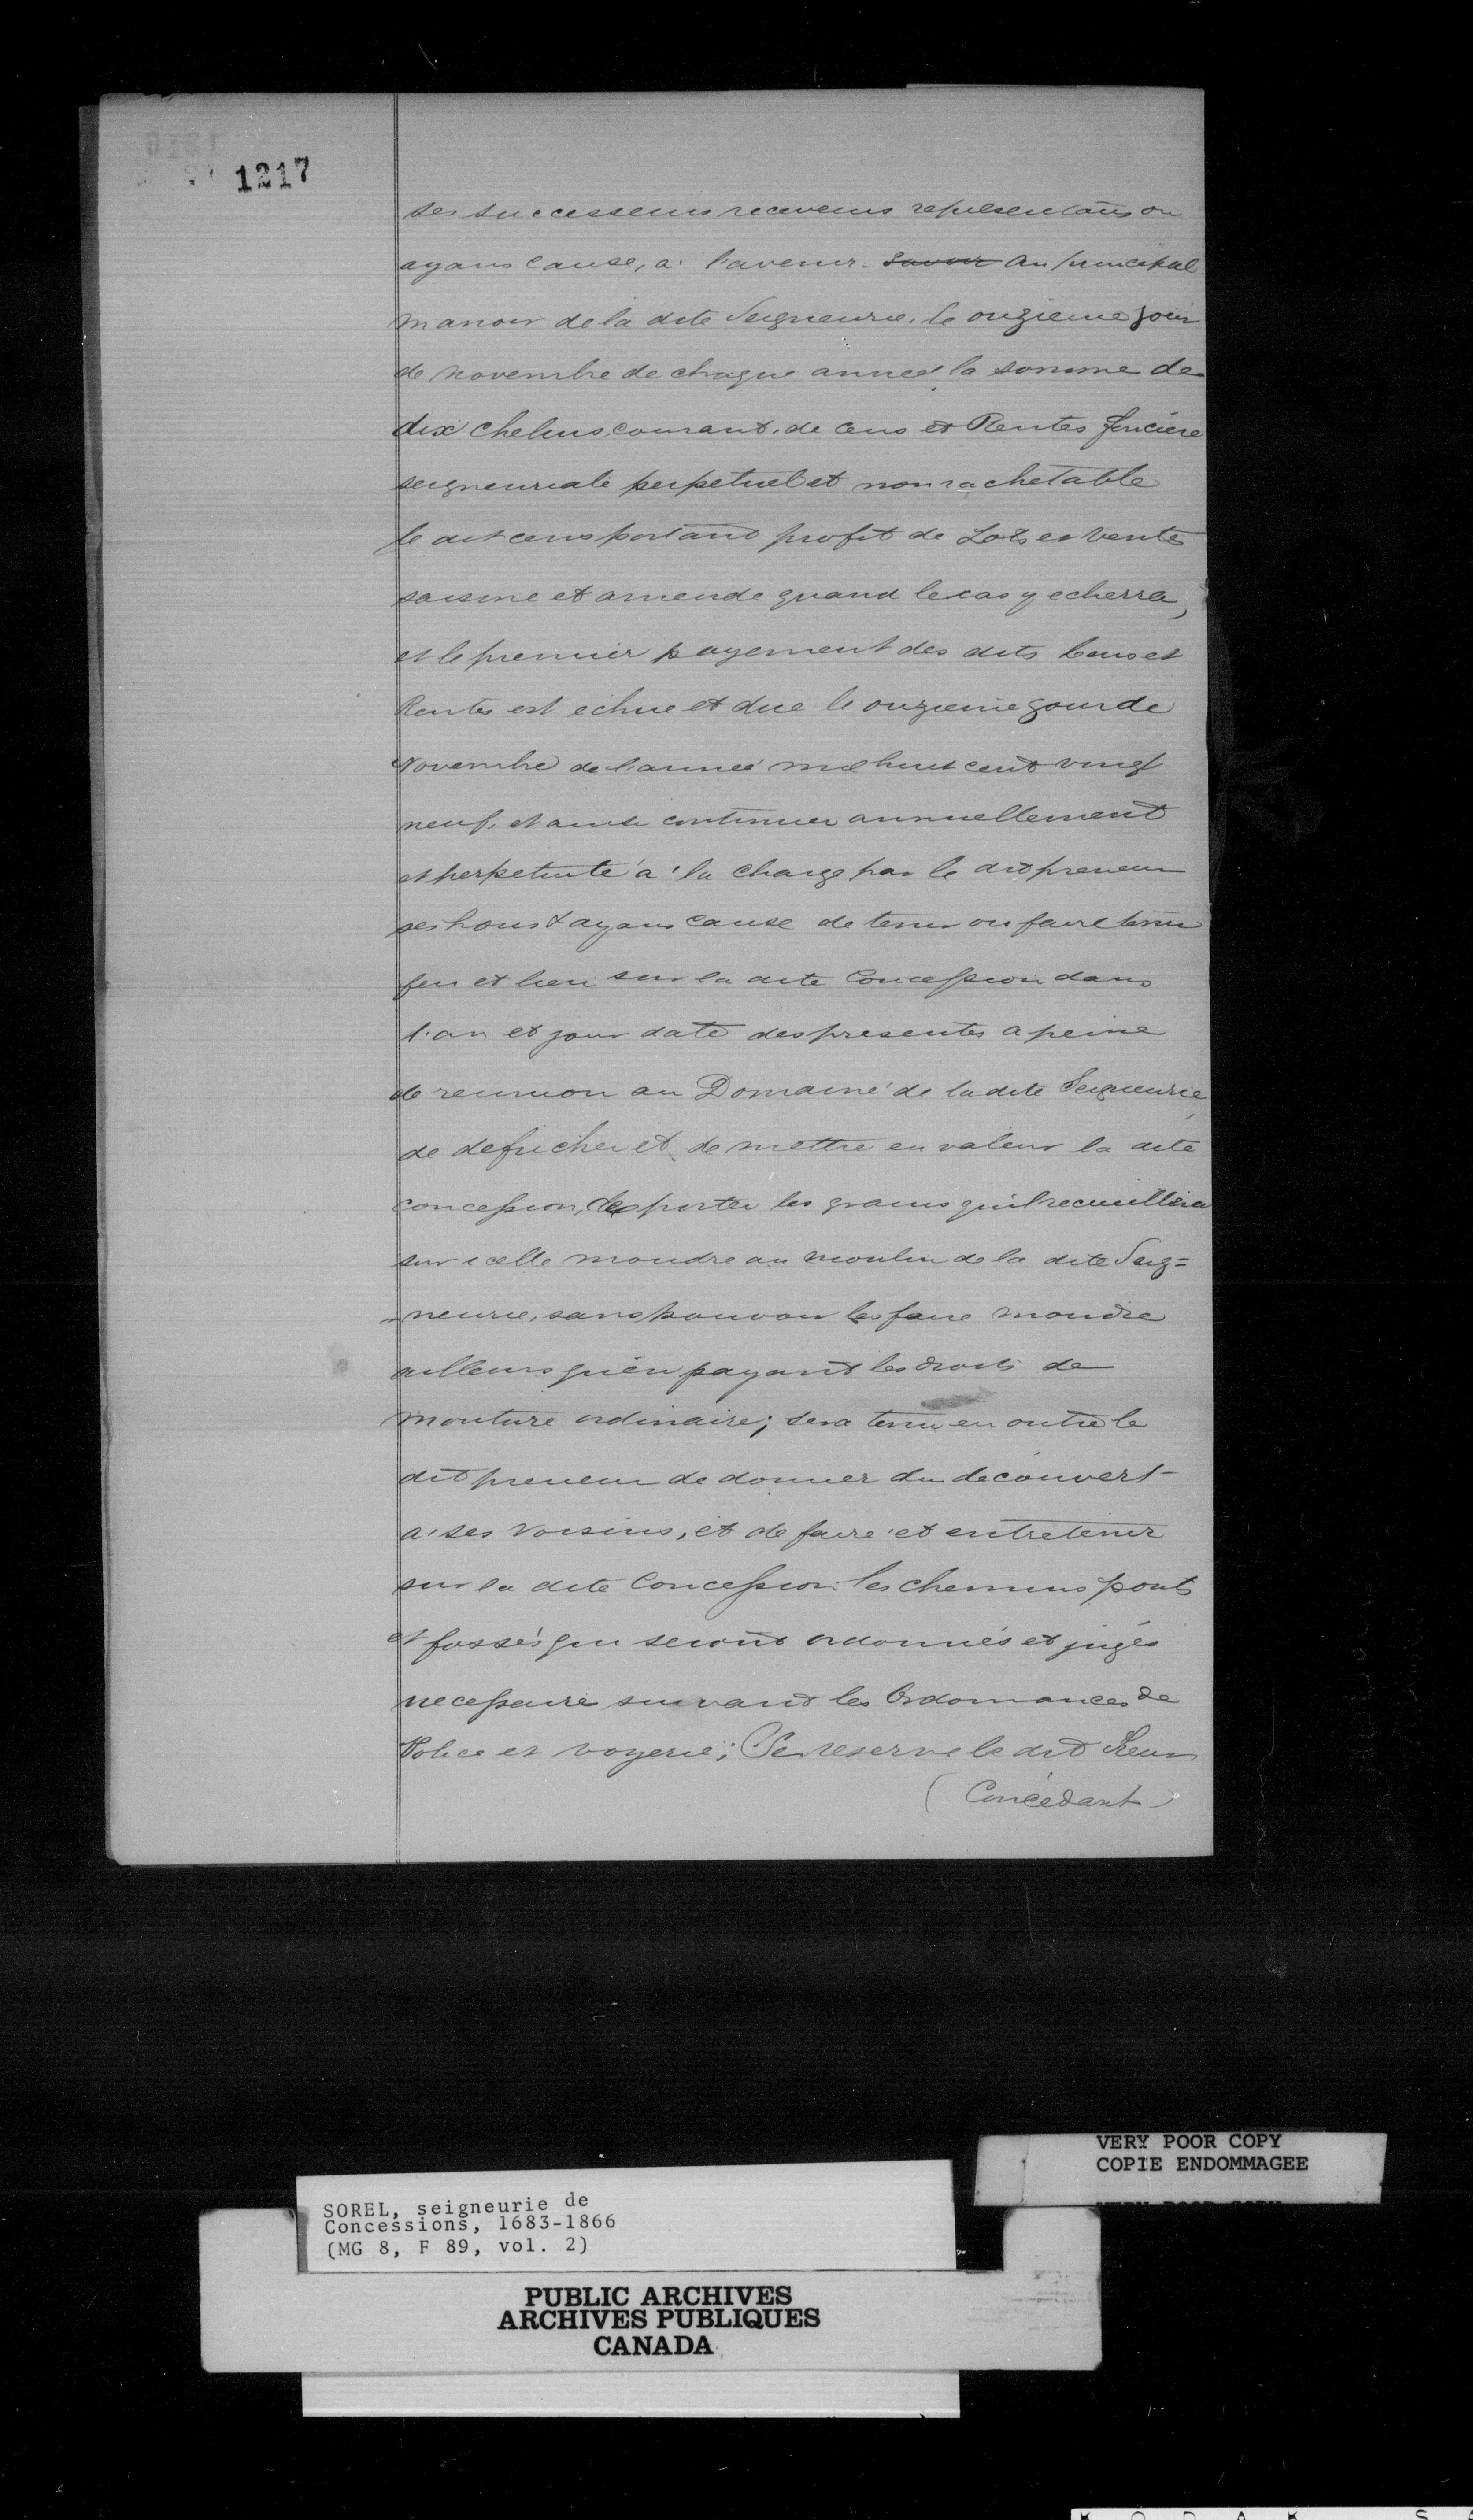 1217
ses successeurs receveurs representans ou
ayans cause, a l'avenir. Savoir Au principal
manoir de la dite Seigneurie, le onzieme jour
de novembre de chaque anneé la somme de
dix chelins courant, de Cens et Rentes fonciere
seigneuriale perpetuel et non rachetable
le dit cens portant profit de Lots et Ventes
saisine et amende quand le cas y echerra,
et le premier payement des dits Cens et
Rentes est echue et due le onzieme jour de
Novembre de l'anneé mil huit cent vingt
neuf, et ainsi continuer annuellement
et perpetuité á la charge par le dit preneur
ses hoirs & ayans cause de tenir ou faire tenir
feu et lieu sur la dite Concession dans
l'an et jour date des presentes a peine
de reunion au Domaine de la dite Seigneurie,
de defricher et de mettre en valeur la dite
concession, de porter les grains qu'il recueillera
sur icelle moudre au moulin de la dite Seig=
=neurie, sans pouvoir les faire moudre
ailleurs qu'en payant les droits de
mouture ordinaire; sera tenu en outre le
dit preneur de donner du decouvert
a ses voisins, et de faire et entretenir
sur la dite Concession les chemins ponts
et fossés qui seront ordonnés et jugés
necessaire suivant les Ordonnances de
Police et voyerie; Se reserve le dit Sieur
(Concédant)
VERY POOR COPY
COPIE ENDOMMAGEE
SOREL, seigneurie de
Concessions, 1683-1866
(MG 8, F 89, vol. 2)
PUBLIC ARCHIVES
ARCHIVES PUBLIQUES
CANADA